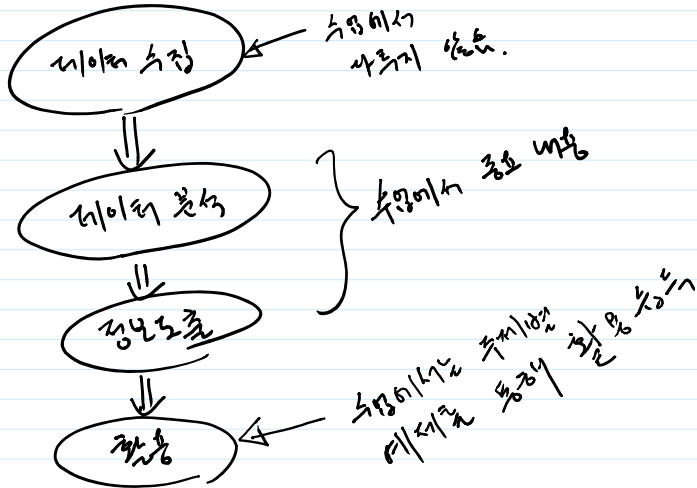 데이터 수집
수업에서
다루지 않음.
데이터 분석
수업에서 중요 내용
정보도출
활용
수업에서는 주제별
예제를 통해 활용 능력